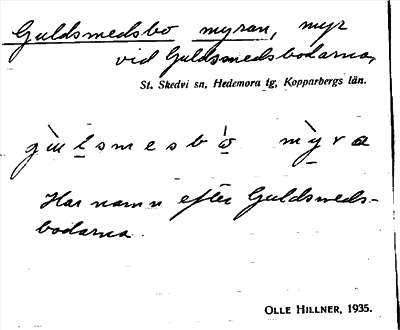 Guldsmedsbo myran, myr
vid Guldsmedsbodarna,
St. Skedvi sn, Hedemora tg, Kopparbergs län.
gùlsmesbò mỳra
Har namn efter Guldsmeds-
bodarna.
OLLE HILLNER, 1935.